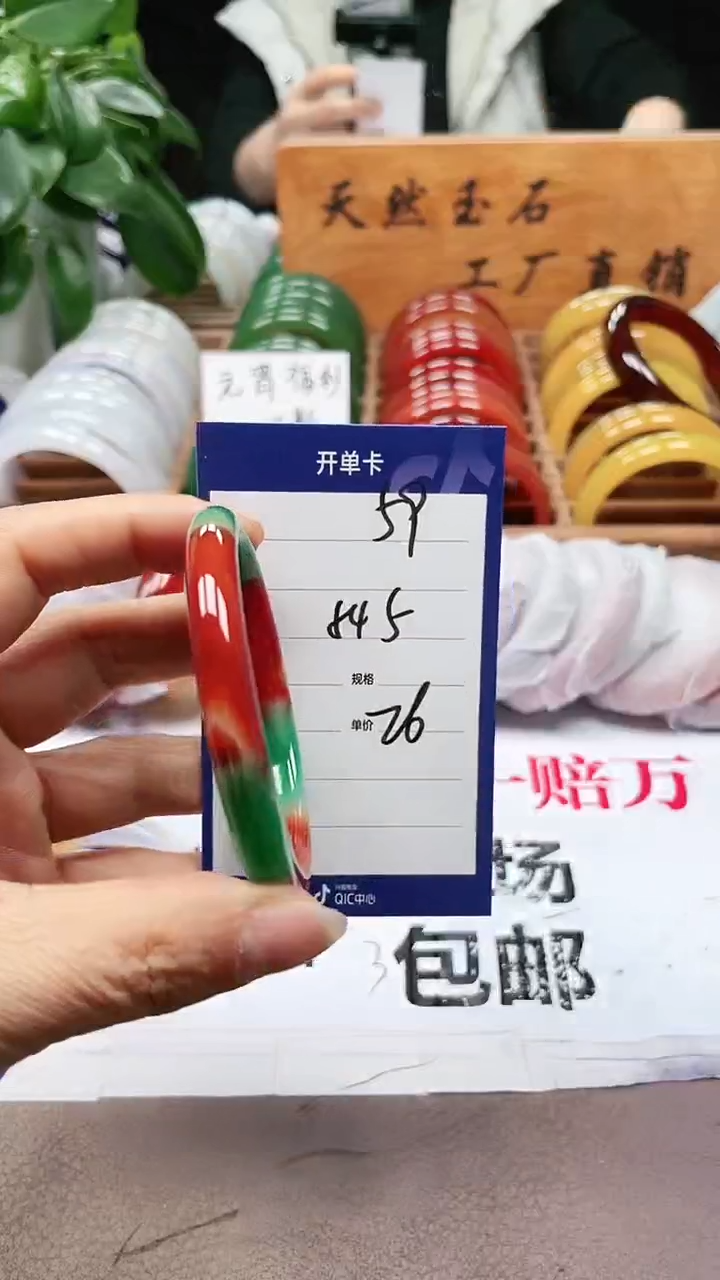 天然玉石
工厂直销
元宵福利
开单卡
59
845
规格
单价 26
QIC中心
一赔万
场
包邮